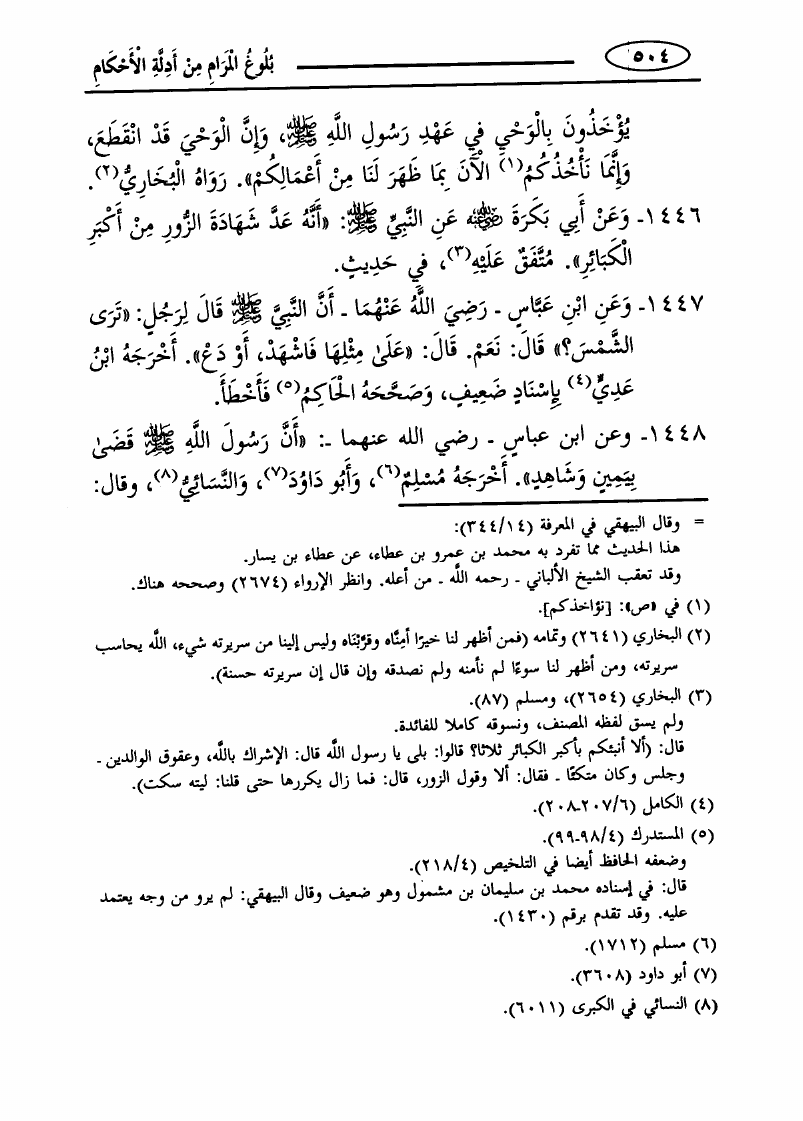 ٥٠٤ بُلُوغُ الْمَرَامِ مِنْ أَدِلَّةِ الْأَحْكَامِ
يُؤْخَذُونَ بِالْوَحْيِ فِي عَهْدِ رَسُولِ اللَّهِ ﷺ، وَإِنَّ الْوَحْيَ قَدْ انْقَطَعَ،
وَإِنَّمَا نَأْخُذُكُمُ(١) الْآنَ بِمَا ظَهَرَ لَنَا مِنْ أَعْمَالِكُمْ». رَوَاهُ الْبُخَارِيُّ(٢).
١٤٤٦- وَعَنْ أَبِي بَكَرَةَ رضي الله عنه عَنِ النَّبِيِّ ﷺ: «أَنَّهُ عَدَّ شَهَادَةَ الزُّورِ مِنْ أَكْبَرِ
الْكَبَائِرِ». مُتَّفَقٌ عَلَيْهِ(٣)، في حَدِيثٍ.
١٤٤٧- وَعَنِ ابْنِ عَبَّاسٍ - رَضِيَ اللَّهُ عَنْهُمَا - أَنَّ النَّبِيَّ ﷺ قَالَ لِرَجُلٍ: «تَرَى
الشَّمْسَ؟» قَالَ: نَعَمْ. قَالَ: «عَلَىٰ مِثْلِهَا فَاشْهَدْ، أَوْ دَعْ». أَخْرَجَهُ ابْنُ
عَدِيٍّ(٤) بِإِسْنَادٍ ضَعِيفٍ، وَصَحَّحَهُ الْحَاكِمُ(٥) فَأَخْطَأَ.
١٤٤٨- وعن ابن عباسٍ - رضي الله عنهما -: «أَنَّ رَسُولَ اللَّهِ ﷺ قَضَىٰ
بِيَمِينٍ وَشَاهِدٍ». أَخْرَجَهُ مُسْلِمٌ(٦)، وَأَبُو دَاوُدَ(٧)، وَالنَّسَائِيُّ(٨)، وقال:
= وقال البيهقي في المعرفة (٣٤٤/١٤):
هذا الحديث مما تفرد به محمد بن عمرو بن عطاء، عن عطاء بن يسار.
وقد تعقب الشيخ الألباني - رحمه اللَّه - من أعله. وانظر الإرواء (٢٦٧٤) وصححه هناك.
(١) في «ص»: [نؤاخذكم].
(٢) البخاري (٢٦٤١) وتمامه (فمن أظهر لنا خيرًا أمِنَّاه وقرَّبْنَاه وليس إلينا من سريرته شيء، اللَّه يحاسب
سريرته، ومن أظهر لنا سوءًا لم نأمنه ولم نصدقه وإن قال إن سريرته حسنة).
(٣) البخاري (٢٦٥٤)، ومسلم (٨٧).
ولم يسق لفظه المصنف، ونسوقه كاملا للفائدة.
قال: (ألا أنبئكم بأكبر الكبائر ثلاثا؟ قالوا: بلى يا رسول اللَّه قال: الإشراك باللَّه، وعقوق الوالدين -
وجلس وكان متكئًا - فقال: ألا وقول الزور، قال: فما زال يكررها حتى قلنا: ليته سكت).
(٤) الكامل (٢٠٧/٦-٢٠٨).
(٥) المستدرك (٩٨/٤-٩٩).
وضعفه الحافظ أيضا في التلخيص (٢١٨/٤).
قال: في إسناده محمد بن سليمان بن مشمول وهو ضعيف وقال البيهقي: لم يرو من وجه يعتمد
عليه. وقد تقدم برقم (١٤٣٠).
(٦) مسلم (١٧١٢).
(٧) أبو داود (٣٦٠٨).
(٨) النسائي في الكبرى (٦٠١١).